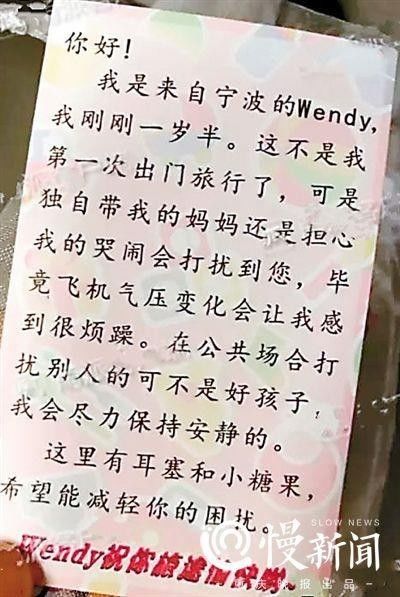 你好!
我是来自宁波的Wendy,
我刚刚一岁半。这不是我
第一次出门旅行了，可是
独自带我的妈妈还是担心
我的哭闹会打扰到您，毕
竟飞机气压变化会让我感
到很烦躁。在公共场合打
扰别人的可不是好孩子，
我会尽力保持安静的。
这里有耳塞和小糖果，
希望能减轻你的困扰。
Wendy祝你旅途愉快哟
SLOW NEWS
慢新闻
重庆晚报出品